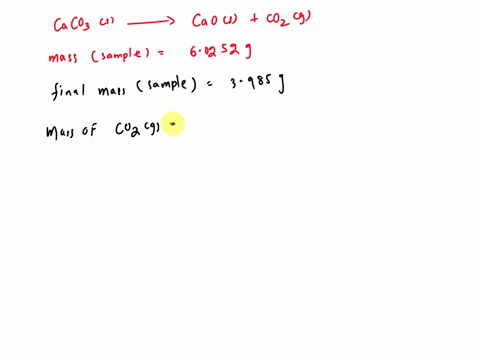 CaCO3 (s) ⟶ CaO (s) + CO2 (g)
mass (sample) = 6.0252 g
final mass (sample) = 3.985 g
Mass of CO2 (g) =